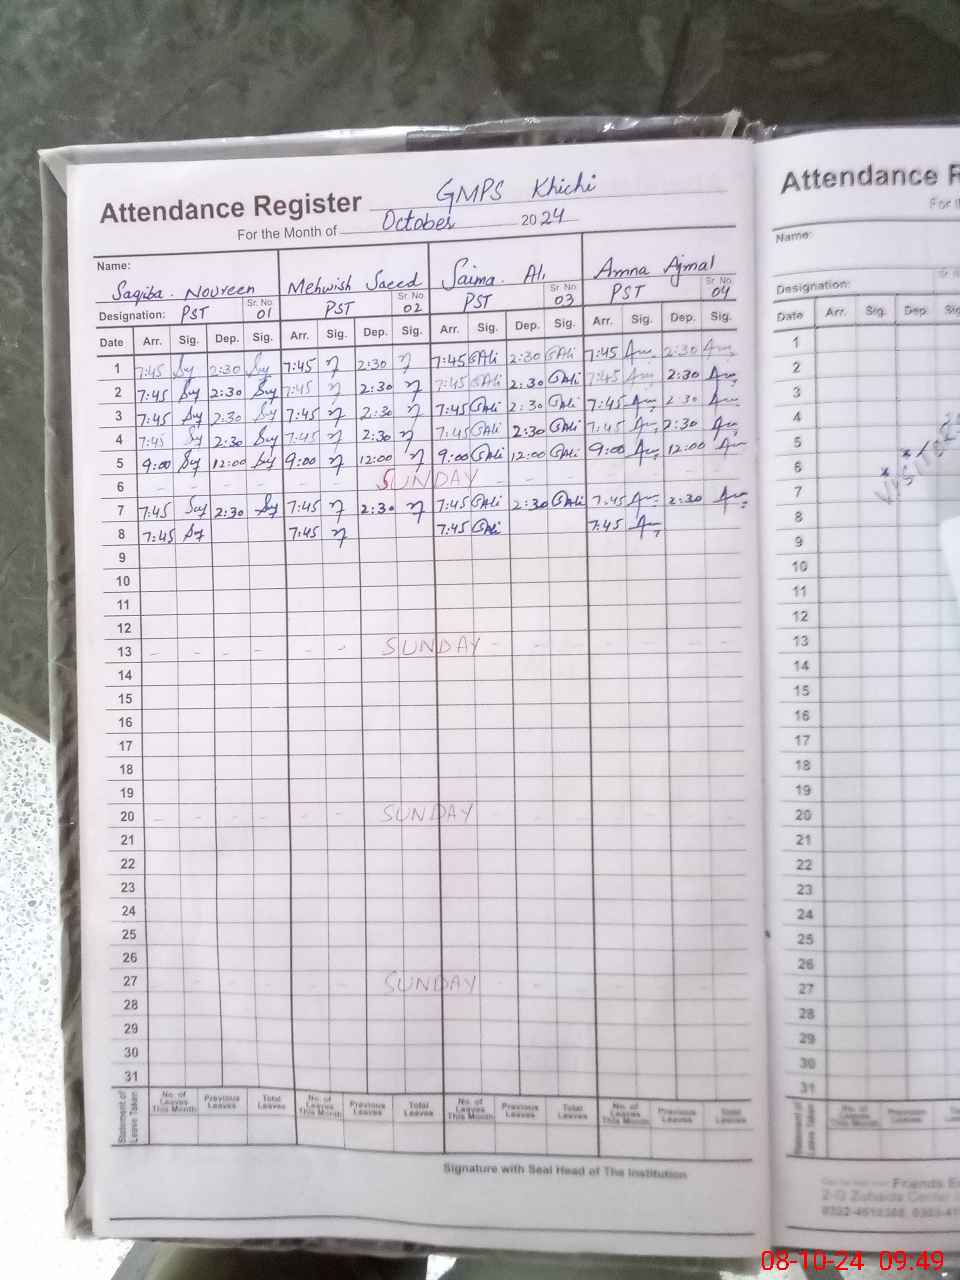 Attendance Register GMPS Khichi
For the Month of October 2024
Name:
Saqiba. Noureen Mehwish Saeed Saima. Ali Amna Ajmal
Designation: PST Sr. No. 01 PST Sr. No. 02 PST Sr. No. 03 PST Sr. No. 04
Date Arr. Sig. Dep. Sig. Arr. Sig. Dep. Sig. Arr. Sig. Dep. Sig. Arr. Sig. Dep. Sig.
1 7:45 2:30 7:45 2:30 7:45 GAli 2:30 GAli 7:45 2:30
2 7:45 2:30 7:45 2:30 7:45 GAli 2:30 GAli 7:45 2:30
3 7:45 2:30 7:45 2:30 7:45 GAli 2:30 GAli 7:45 2:30
4 7:45 2:30 7:45 2:30 7:45 GAli 2:30 GAli 7:45 2:30
5 9:00 12:00 9:00 12:00 9:00 GAli 12:00 GAli 9:00 12:00
6 SUNDAY
7 7:45 2:30 7:45 2:30 7:45 GAli 2:30 GAli 7:45 2:30
8 7:45 7:45 7:45 GAli 7:45
9
10
11
12
13 SUNDAY
14
15
16
17
18
19
20 SUNDAY
21
22
23
24
25
26
27 SUNDAY
28
29
30
31
Statement of Leave Taken No. of Leaves This Month Previous Leaves Total Leaves No. of Leaves This Month Previous Leaves Total Leaves No. of Leaves This Month Previous Leaves Total Leaves No. of Leaves This Month Previous Leaves Total Leaves
Signature with Seal Head of The Institution
Attendance R
For th
Name:
Designation:
Date Arr. Sig. Dep. Sig
1
2
3
4
5
6
7
8
9
10
11
12
13
14
15
16
17
18
19
20
21
22
23
24
25
26
27
28
29
30
31
No. of Leaves This Month Previous Leaves
Friends E
08-10-24 09:49